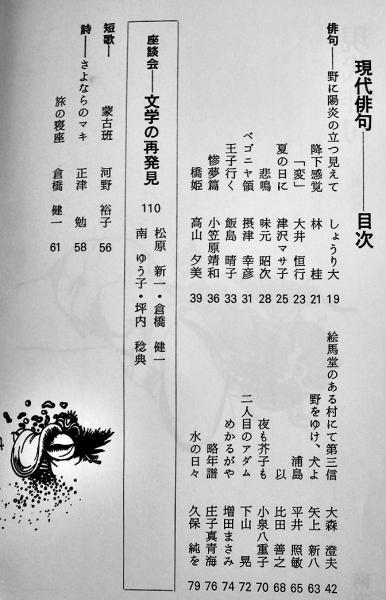 現代俳句――目次
俳句――野に陽炎の立つ見えて しょうり大 19
降下感覚 林 桂 21
「変」 大井 恒行 23
夏の日に 津沢マサ子 25
悲鳴 味元 昭次 28
ベゴニヤ領 摂津 幸彦 31
王子行く 飯島 晴子 33
惨夢篇 小笠原靖和 36
橋姫 高山 夕美 39
絵馬堂のある村にて第三信 大森 澄夫 42
野をゆけ、犬よ 矢上 新八 63
浦島 平井 照敏 65
以 比田 善之 68
夜も芥子も 小泉八重子 70
二人目のアダム 下山 晃 72
めかるがや 増田まさみ 74
略年譜 庄子真青海 76
水の日々 久保 純を 79
座談会――文学の再発見 110
松原 新一・倉橋 健一
南 ゆう子・坪内 稔典
短歌―― 蒙古斑 河野 裕子 56
詩――さよならのマキ 正津 勉 58
旅の寝座 倉橋 健一 61